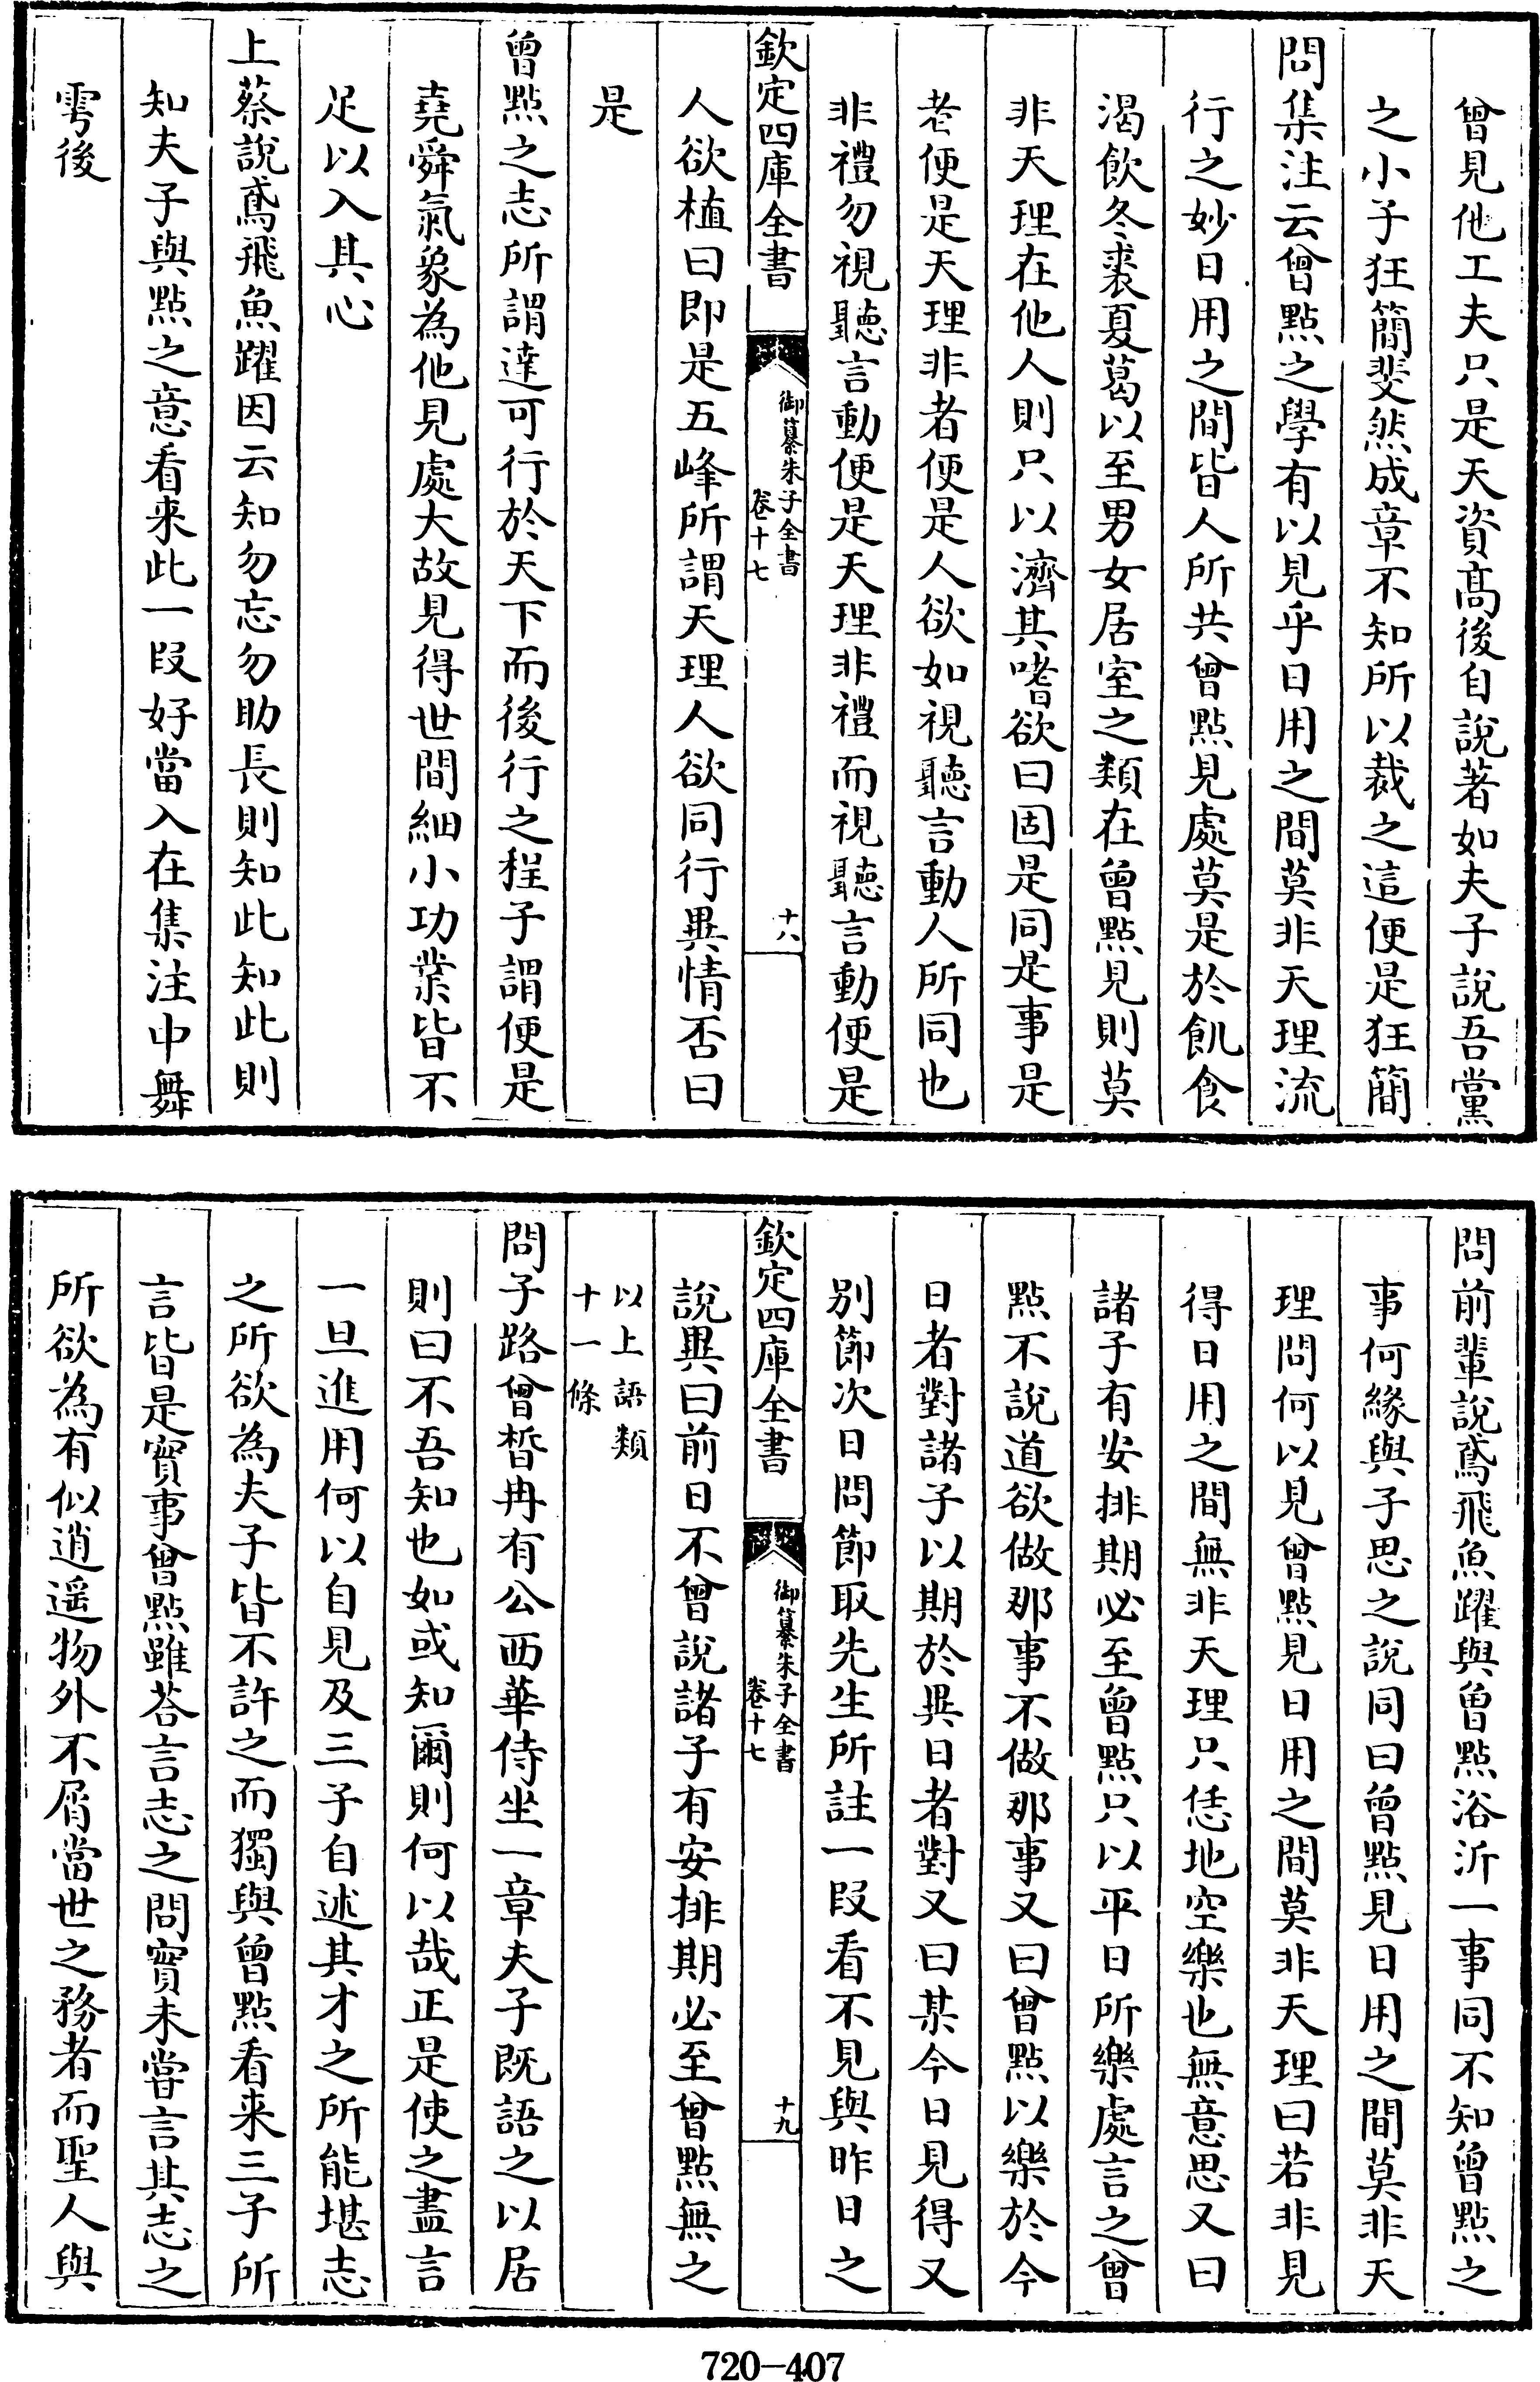 曾見他工夫只是天資髙後自說著如夫子說吾黨
之小子狂簡斐然成章不知所以裁之這便是狂簡
問集注云曾點之學有以見乎日用之間莫非天理流
行之妙日用之間皆人所共曾點見處莫是於飢食
渴飲冬裘夏葛以至男女居室之類在曾點見則莫
非天理在他人則只以濟其嗜欲曰固是同是事是
者便是天理非者便是人欲如視聽言動人所同也
非禮勿視聽言動便是天理非禮而視聽言動便是
欽定四庫全書 御纂朱子全書 卷十七 十八
人欲植曰即是五峰所謂天理人欲同行異情否曰
是
曾點之志所謂達可行於天下而後行之程子謂便是
堯舜氣象為他見處大故見得世間細小功業皆不
足以入其心
上蔡說鳶飛魚躍因云知勿忘勿助長則知此知此則
知夫子與點之意看来此一段好當入在集注中舞
雩後
問前輩說鳶飛魚躍與曾點浴沂一事同不知曾點之
事何緣與子思之說同曰曾點見日用之間莫非天
理問何以見曾點見日用之間莫非天理曰若非見
得日用之間無非天理只恁地空樂也無意思又曰
諸子有安排期必至曾點只以平日所樂處言之曾
點不說道欲做那事不做那事又曰曾點以樂於今
日者對諸子以期於異日者對又曰某今日見得又
別節次日問節取先生所註一段看不見與昨日之
欽定四庫全書 御纂朱子全書 卷十七 十九
說異曰前日不曾說諸子有安排期必至曾點無之
以上語類
十一條
問子路曾晳冉有公西華侍坐一章夫子既語之以居
則曰不吾知也如或知爾則何以哉正是使之盡言
一旦進用何以自見及三子自述其才之所能堪志
之所欲為夫子皆不許之而獨與曾點看来三子所
言皆是實事曾點雖荅言志之問實未嘗言其志之
所欲為有似逍遥物外不屑當世之務者而聖人與
720-407